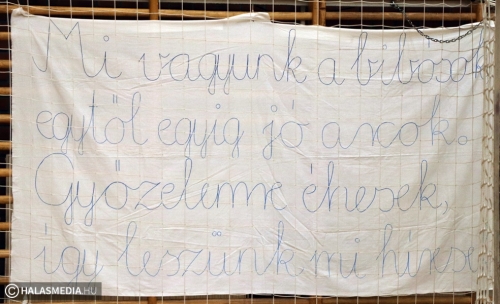 Mi vagyunk a bibósok
egytől egyig jó arcok.
Győzelemre éhesek,
így leszünk mi híresek
© HALASMEDIA.HU